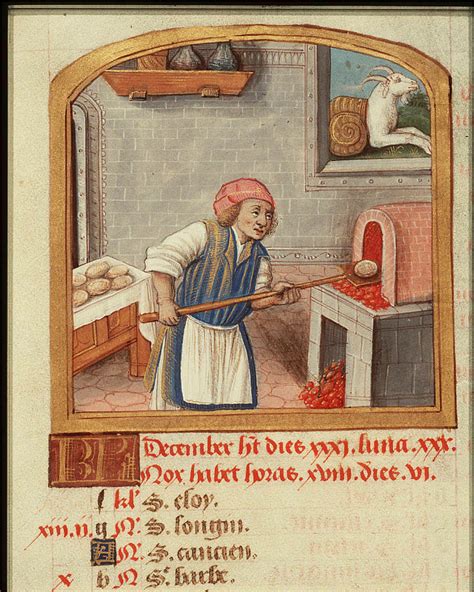 KL December ht dies xxxi. luna. xxx.
Nox habet horas. xviii. dies. vi.
f kl' S. eloy.
xiii. ii. g N. S. longin.
A N. S. caucien.
x b N S. barbe.